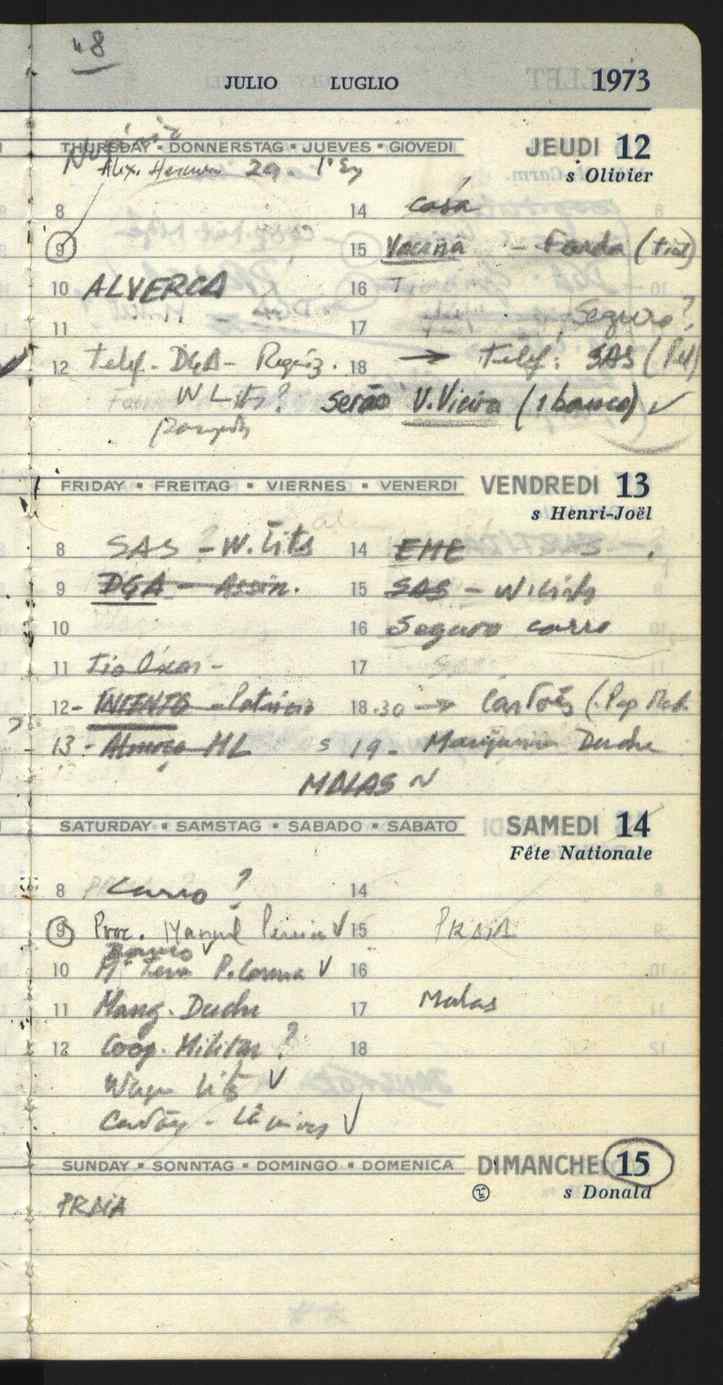 48
JULIO LUGLIO 1973
THURSDAY • DONNERSTAG • JUEVES • GIOVEDI JEUDI 12
Alex. 29 - 1º
s Olivier
8 14 casa
9 15 Vacina - Farda (
10 ALVERCA 16 T
11 17 Seguro?
12 Telef. DGA - 18 → Telef: SAS (
W Lits? serão V. Vieira (1 banco) ✓
FRIDAY • FREITAG • VIERNES • VENERDI VENDREDI 13
s Henri-Joël
8 SAS - W. Lits 14 EME
9 DGA - Assin. 15 SAS - W Lits
10 16 Seguro carro
11 Tio Oscar - 17
12 - - Patrício 18.30 → Cartões (
13 - Almoço ML 19 - Duche
MALAS
SATURDAY • SAMSTAG • SABADO • SABATO SAMEDI 14
Fête Nationale
8 Carro? 14
9 Proc. Manuel Pereira ✓ 15 PRAIA
Banco ✓
10 Mª ✓ 16
11 Mang. Duche 17 Malas
12 Coop. Militar? 18
Wagon Lits ✓
Cartão - ✓
SUNDAY • SONNTAG • DOMINGO • DOMENICA DIMANCHE 15
s Donald
PRAIA